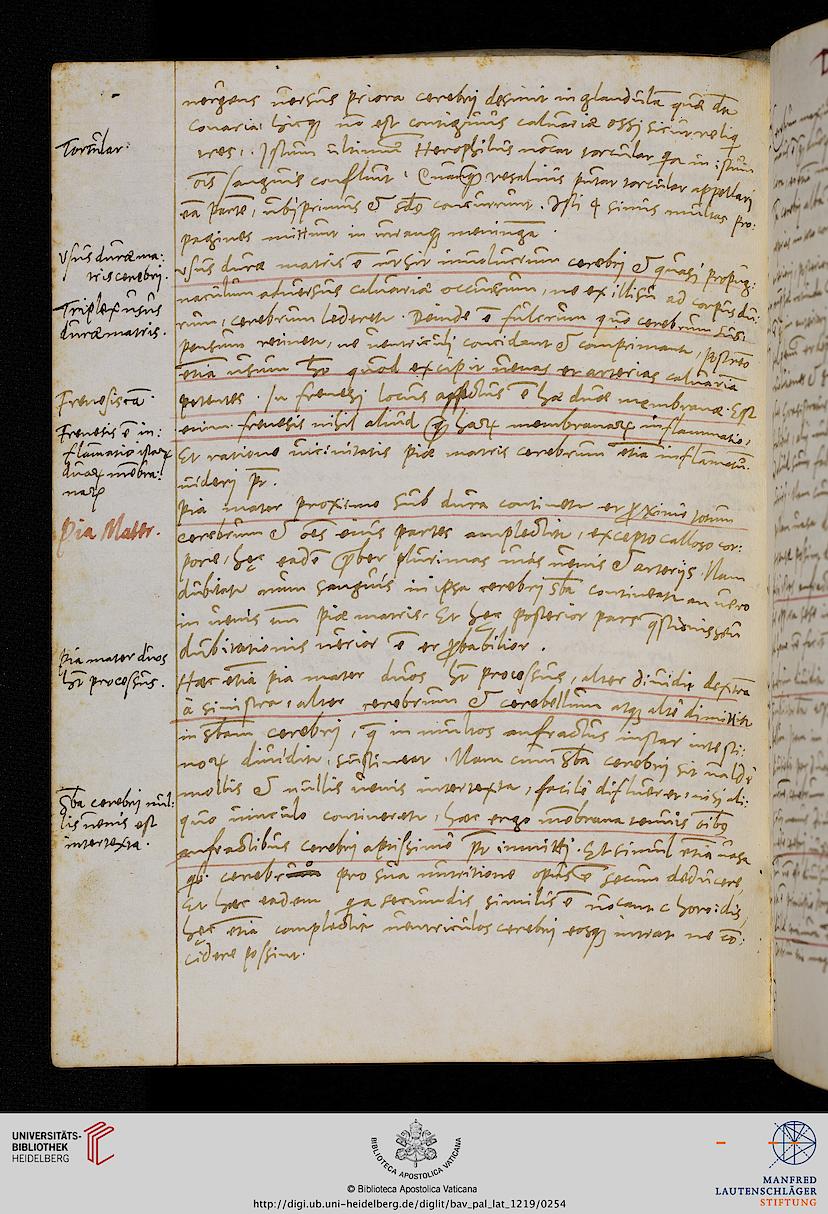 Torcular.
Usus duræ ma:
tris cerebrj.
Triplex usus
duræ matris.
Frenesis ca
Frenesis ē in:
flamatio istaꝝ
duaꝝ mēbra:
naꝝ
Pia Mater.
Pia mater duos
h̄t processus.
Sb̄a cerebrij nul:
lis uenis est
intertexta.
uergens uersus priora cerebrj desinit in glandula quæ
conaria, hicq̨ nō est contiguus caluariæ ossi sicut reliq
tres. Istum ultimum Herophilus uocat torcular qa in istum
ois sanguis confluit. Vesalius putat torcular appellarj
eā parte, ubi primus & sdo concurrunt. Isti 4 sinus multas pro:
pagines mittunt in utramq̨ meninga.
Usus duræ matris ē ut sit inuolucrum cerebrj & quasj propug:
naculum aduersus caluariæ occursum, ne ex illisu ad corpus du:
rum, cerebrum lederetr. Deinde ē fulcrum quo cerebrum susi
pensum retinetr, ne uentriculj concidant & comprimantr, postremo
etiā usum h̄t quod excipit uenas et arterias caluariā
petentes. In frenesj locus affectus ē hæ duæ membranæ. Est
enim frenesis nihil aliud q̄ haꝝ membranaꝝ inflammatio,
Et ratione uicinitatis piæ matris cerebrum etiā inflamatū
uiderj pt̄.
Pia mater proxime sub dura continetr et proxime totum
cerebrum & oēs eius partes amplectitr, excepto calloso cor:
pore, hęc eadē præbet plurimas uias uenis & arterijs. Nam
dubitatr num sanguis in ipsa cerebrj sb̄a contineatr an uero
in uenis piæ matris. Et hęc posterior pars qstionis seu
dubitationis uerior ē et probabilior.
Hæc etiā pia mater duos h̄t processus, alter diuidit dextra
à sinistra, alter cerebrum & cerebellum atq̨
in sb̄am cerebrj, q̄ in multos anfractus instar intesti:
noꝝ diuiditr, sustineat. Nam cum sb̄a cerebrj sit ualde
mollis & nullis uenis intertexta, facile difflueret, nisi ali:
quo uinculo contineretr, hæc ergo mēbrana tenuis oibq
anfractibus cerebrj aptissime pt̄ immittj. Et simul etiā uasa
cerebr pro sua nutritione opus ē secum deducere,
Et hæc eadem qa secundis similis ē uocant choroidis,
hęc etiā complectitr uentriculos cerebrj eosq̨ intrat ne cō:
cidere possint.
UNIVERSITÄTS-
BIBLIOTHEK
HEIDELBERG
BIBLIOTECA APOSTOLICA VATICANA
© Biblioteca Apostolica Vaticana
http://digi.ub.uni-heidelberg.de/diglit/bav_pal_lat_1219/0254
MANFRED
LAUTENSCHLÄGER
STIFTUNG